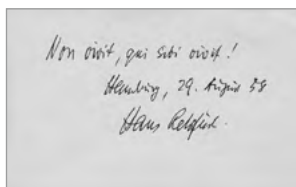 Non vivit, qui sibi vivit!
Hamburg, 29. August 58
Hans